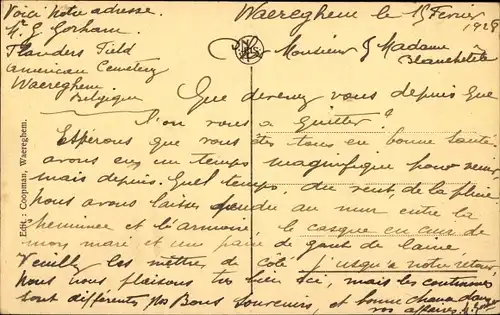 Voici notre adresse.
Mr G Gorham.
Flanders Field
American Cemetery
Waereghem.
Belgique
Waereghem le 15 Fevrier
1928
Monsieur & Madame
Blanchetête
Que devenez vous depuis que
l'on vous a quitter?
Esperons que vous êtes tous en bonne santé.
avons eus un temps magnifique pour venir,
mais depuis. Quel temps. du vent, de la pluie
Nous avons laisser pendu au mur entre la
cheminee et l'armoire, le casque en cuir de
mon mari et un paire de gants de laine
Veuillez les mettres de côté jusqu'a notre retour
Nous nous plaisons tres bien ici, mais les coutumes
sont différentes Nos Bons Souvenirs, et bonne chance dans
vos affaires. M. G
Edit : Coopman, Waereghem.